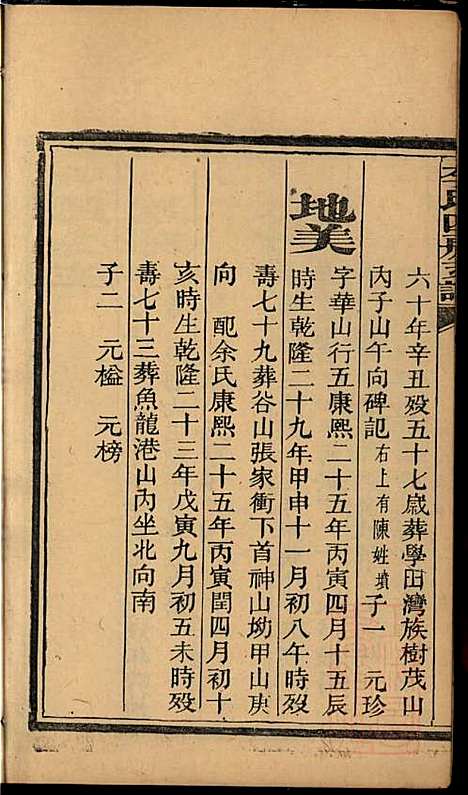 六十年辛丑歿五十七歲葬學田灣族樹茂山
丙子山午向碑記右上有陳姓墳子一 元珍
地美
字華山行五康熙二十五年丙寅四月十五辰
時生乾隆二十九年甲申十一月初八午時歿
壽七十九葬谷山張家衝下首神山坳甲山庚
向 配余氏康熙二十五年丙寅閏四月初十
亥時生乾隆二十三年戊寅九月初五未時歿
壽七十三葬魚龍港山內坐北向南
子二 元榏 元榜